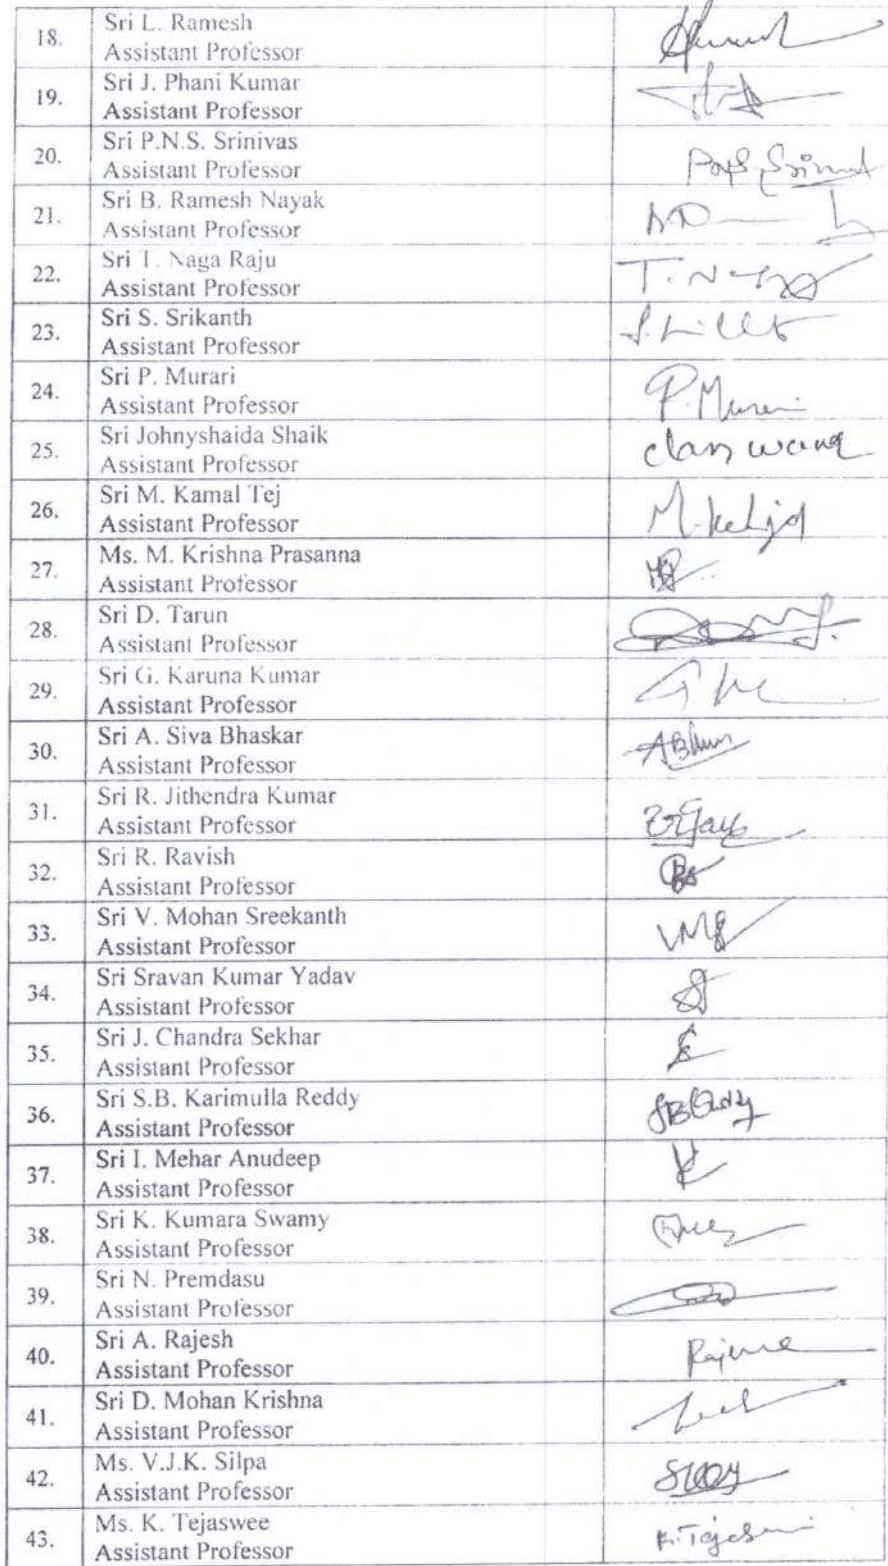 18.
Sri L. Ramesh
Assistant Professor
19.
Sri J. Phani Kumar
Assistant Professor
20.
Sri P.N.S. Srinivas
Assistant Professor
21.
Sri B. Ramesh Nayak
Assistant Professor
22.
Sri T. Naga Raju
Assistant Professor
23.
Sri S. Srikanth
Assistant Professor
24.
Sri P. Murari
Assistant Professor
25.
Sri Johnyshaida Shaik
Assistant Professor
class work
26.
Sri M. Kamal Tej
Assistant Professor
27.
Ms. M. Krishna Prasanna
Assistant Professor
28.
Sri D. Tarun
Assistant Professor
29.
Sri G. Karuna Kumar
Assistant Professor
30.
Sri A. Siva Bhaskar
Assistant Professor
31.
Sri R. Jithendra Kumar
Assistant Professor
32.
Sri R. Ravish
Assistant Professor
33.
Sri V. Mohan Sreekanth
Assistant Professor
34.
Sri Sravan Kumar Yadav
Assistant Professor
35.
Sri J. Chandra Sekhar
Assistant Professor
36.
Sri S.B. Karimulla Reddy
Assistant Professor
37.
Sri I. Mehar Anudeep
Assistant Professor
38.
Sri K. Kumara Swamy
Assistant Professor
39.
Sri N. Premdasu
Assistant Professor
40.
Sri A. Rajesh
Assistant Professor
41.
Sri D. Mohan Krishna
Assistant Professor
42.
Ms. V.J.K. Silpa
Assistant Professor
43.
Ms. K. Tejaswee
Assistant Professor